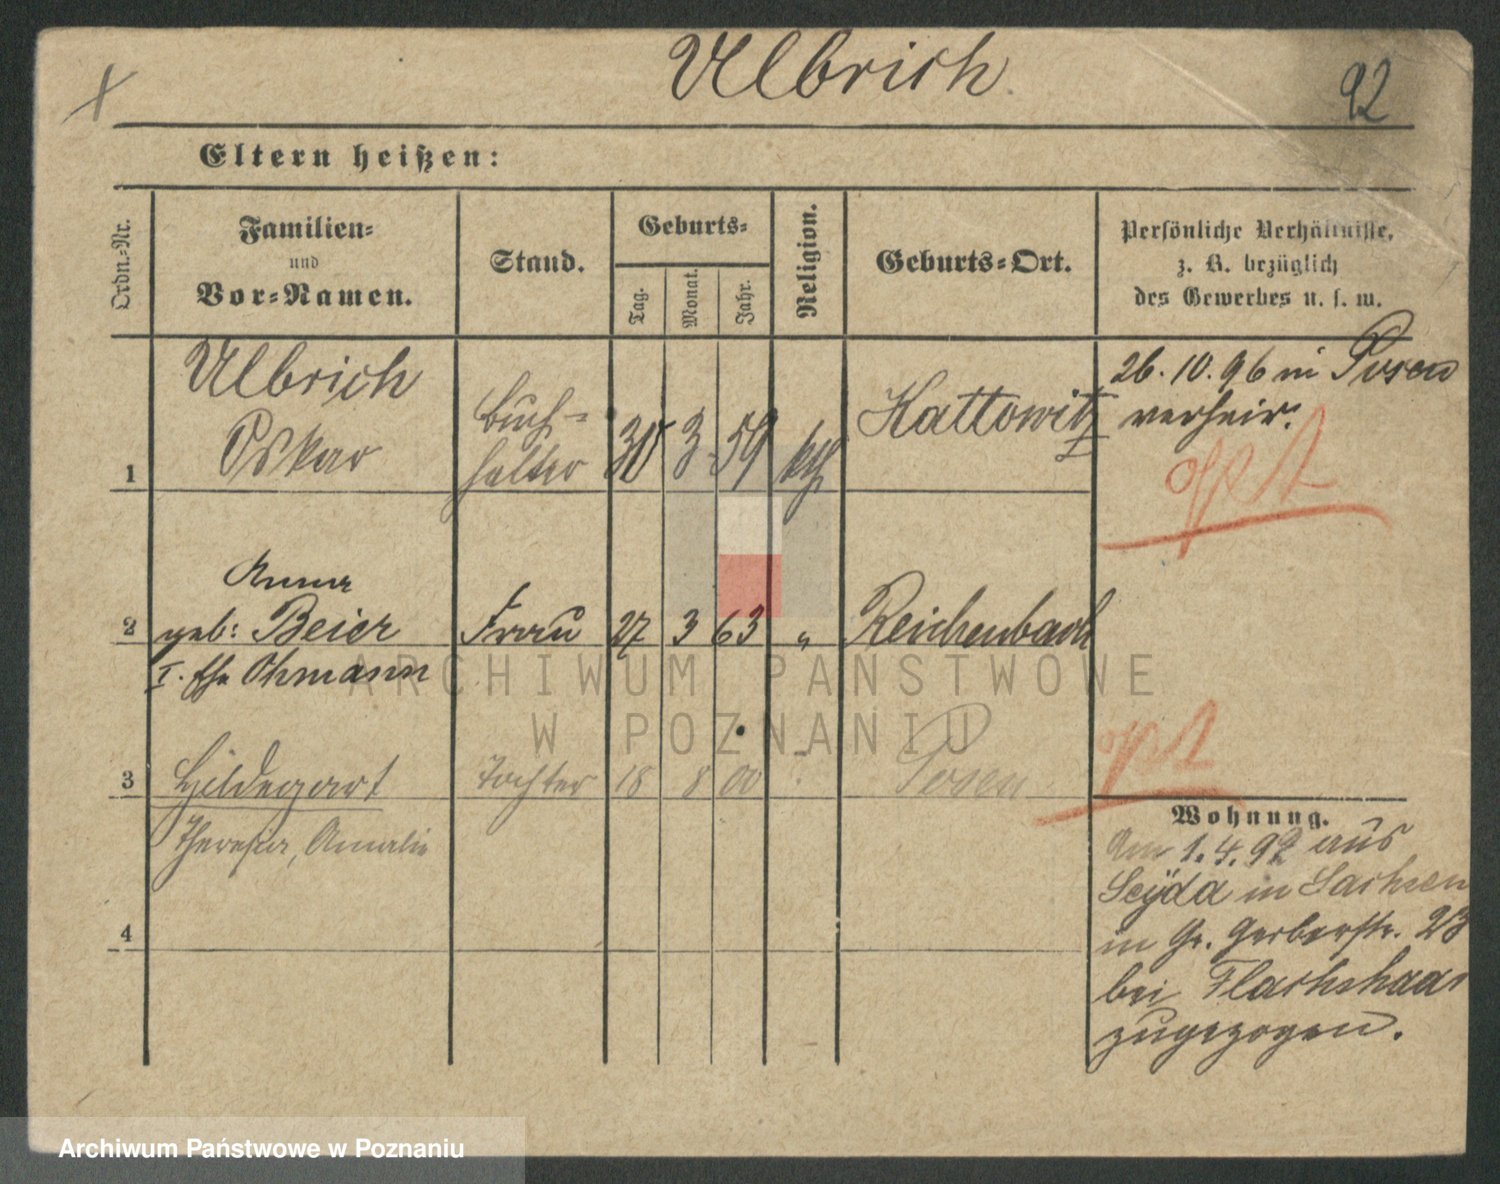 Ulbrich.
92
Eltern heißen:
Ordn.-Nr.
Familien-
und
Vor-Namen.
Stand.
Geburts-
Tag.
Monat.
Jahr.
Religion.
Geburts-Ort.
Persönliche Verhältnisse,
z. B. bezüglich
des Gewerbes u. s. w.
1
Ulbrich
Oskar
Buch-
halter
30 3 59 kth
Kattowitz
26.10.96 in Posen
verheir.
opt
2
Anna
geb: Beier
I. Ehe Ohmann
Frau
27 3 63 "
Reichenbach
3
Hildegart
Theresia, Amalie
Tochter
18 8 00
Posen
opt
4
Wohnung.
Am 1.4.92 aus
Seÿda in Sachsen
in Gr. Gerberstr. 23
bei Flachshaar
zugezogen.
ARCHIWUM PAŃSTWOWE
W POZNANIU
Archiwum Państwowe w Poznaniu